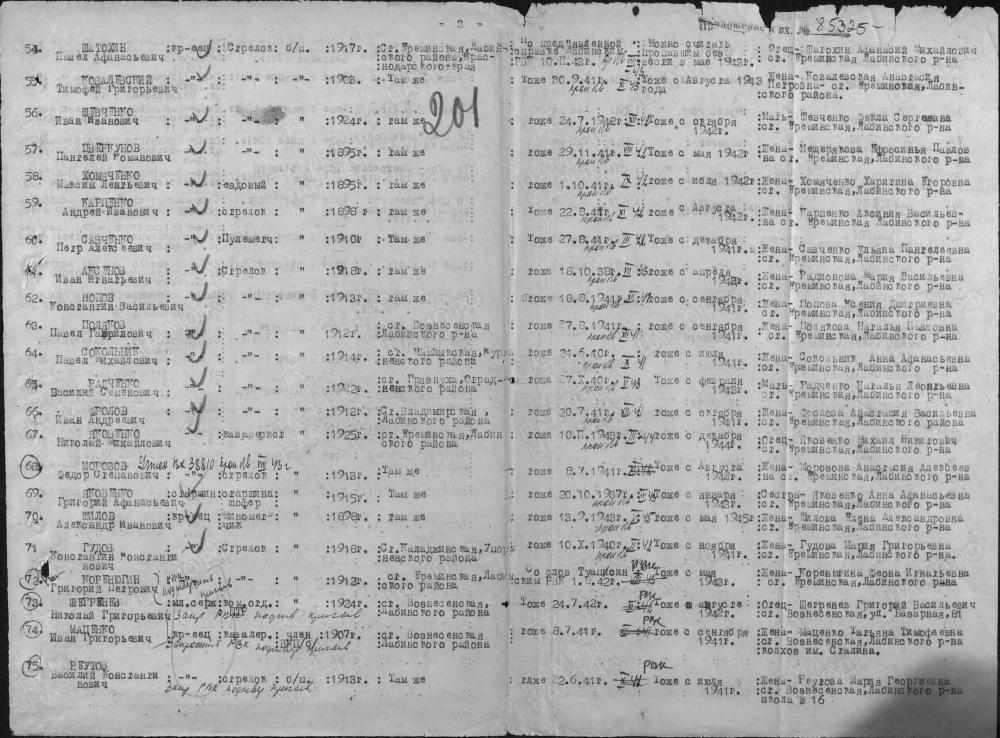 - 3 -
вх. № 85325-
54. ШАТОХИН :кр-еец :Стрелок: б/п. :1917г. :Ст. Ереминская, Лабин- :По предъявленной : Можно считать :Отец- Шатохин Афанасий Михайлович
Павел Афанасьевич ского района, Крас- справке Лабинским пропавшим без : ст. Ереминская Лабинского р-на
нодарского края РВК 10.П.43г. вести в мае 1943г.
55. КОВАЛЕВСКИЙ : -"- : -"- : -"- :1902. : Там же : Тоже 20.9.41г. Тоже с Августа 1943 Жена- Ковалевская Анастасия
Тимофей Григорьевич года Петровна- ст. Ереминская, Лабин-
ского района.
201
56. ШЕВЧЕНКО : -"- : -"- :1924г. : там же : тоже 24.7.42г. Тоже с октября :Мать- Шевченко Фекла Сергеевна
Иван Иванович 1942г. ст. Ереминская, Лабинского р-на
57. : -"- : -"- : " :1895г. : там же : тоже 29.11.41г. Тоже с мая 1942г :Жена- Мещерякова Ефросинья Павлов
Пантелей Романович на ст. Ереминская, Лабинского р-на
58. ХОМЯЧЕНКО : -"- :ездовый : " :1895г. : там же : тоже 1.10.41г. Тоже с июля 1942г :Жена- Хомяченко Харитина Егоровна
Максим ст. Ереминская, Лабинского р-на
59. КАРПЕНКО : -"- :стрелок : " :1898 г : там же : Тоже 22.8.41г. тоже с Августа :Жена- Карпенко Аксиния Васильев-
Андрей Иванович 1942г. на ст. Ереминская Лабинского р-на
60. САВЧЕНКО : -"- :Пулеметч: " :1910г : Там же : Тоже 27.8.41г. Тоже с декабря :Жена- Савченко Ульяна Пантелеевна
Петр Алексеевич : 1941г. ст. Ереминская, Лабинского р-на
АКСЕНОВ : -"- :Стрелок : " :1918г. : там же : тоже 18.10.38г. тоже с апреля :Жена- Радионова Мария Васильевна
Иван Игнатьевич : ст. Ереминская, Лабинского р-на
62. ПОПОВ : -"- : -"- : " :1913г. : там же : тоже 18.8.1941г. тоже с сентября :Жена- Попова Ксения Дмитриевна
Константин Васильевич 1941г. ст. Ереминская, Лабинского р-на
63. ПОЛЯКОВ : -"- : -"- : " :1912г. :ст. Вознесенская : тоже 27.8.1941г. : тоже с сентября :Жена- Полякова Наталья Павловна
Павел Гаврилович Лабинского р-на 1941г. ст. Ереминская, Лабинского р-на
64. СОКОЛЬНИК : -"- : -"- : " :1914г. : ст. Чамлыкская, Курга : тоже 24.6.40г. : тоже с июля :Жена- Сокольник Анна Афанасьевна
Павел Михайлович : ненского района 1941г. ст. Ереминская, Лабинского р-на
РАДЧЕНКО : -"- : -"- : " :1922г. :ст. Гривнуха, Отрад- : тоже 27.Х.40г. Тоже с февраля :Мать- Радченко Наталья Леонтьевна
Василий Семенович : ненского района 1943г. ст. Ереминская, Лабинского р-на
ФРОЛОВ : -"- : -"- : " :1912г. :Ст. Владимировская, : тоже 20.7.41г. : тоже с октября :Жена- Фролова Анастасия Васильевна
Иван Андреевич Лабинского района 1941г. ст. Ереминская, Лабинского района
67. ЯКОВЕНКО : -"- :кавалерист " :1925г. :ст. Ереминская, Лабин : тоже 10.П.1943г. тоже с декабря :Отец- Яковенко Михаил Никитович
Николай Михайлович ского района 1944г. ст. Ереминская, Лабинского р-на
68. МОРОЗОВ Учтен Вх 38810 43 г
Федор Степанович : -"- :стрелок : " :1913г. :Там же : тоже 8.7.1941г. Тоже с Августа :Жена- Морозова Анастасия Алексеев
на ст. Ереминская, Лабинского р-на
69. ЯКОВЕНКО :старшин:старшина: " :1915г. : Там же : тоже 20.10.1937г. тоже с января :Сестра- Яковенко Анна Афанасьевна
Григорий Афанасьевич шофер : 1943г. ст. Ереминская, Лабинского р-на
70. ШИЛОВ :кр-еец :миномет- " :1898г. : там же : тоже 13.9.1943г. Тоже с мая 1945г :Жена- Шилова Елена Александровна
Александр Иванович чик ст. Ереминская, Лабинского р-на
71 ГУДОВ : -"- :Стрелок : " :1918г. :Ст. Каладжинская, Упор : тоже 10.Х.1940г Тоже с ноября :Жена- Гудова Мария Григорьевна
Константин Константи ненского района ст. Ереминская, Лабинского р-на.
нович
72. КОРЕНЮГИН : -"- : " :1912г. : ст. Ереминская, Лабин :Со слов Туапсин Тоже с мая :Жена- Коренюгина Феона Игнатьевна
Григорий Петрович ского района ским РВК 1.8.42г. 1943г. ст. Ереминская, Лабинского р-на
73. ШЕГРЕНЕВ :мл.серж:ком.отд.: " :1924г. :ст. Вознесенская : Тоже 24.7.42г. РВК Тоже в августе :Отец- Шегренев Григорий Васильевич
Николай Григорьевич Запр РВК подтв призыв Лабинского района 1942г. ст. Вознесенская, ул. Базарная, 81
74. МАЦЕНКО :кр-еец :кавалер.: член :1907г. :ст. Вознесенская : тоже 8.7.41г. РВК тоже с сентября :Жена- Маценко Татьяна Тимофеевна
Иван Григорьевич Запросить РВК подтвер призыв Лабинского района 1941г. ст. Вознесенская, Лабинского р-на
колхоз им. Сталина.
75. РЕУТОВ РВК
Василий Константи : -"- :стрелок : б/п. :1913г. : Там же : тоже 22.6.41г. Тоже с июля :Жена- Реутова Мария Георгиевна
нович Запр РВК подтвер призыв 1941г. ст. Вознесенская, Лабинского р-на
школа № 16